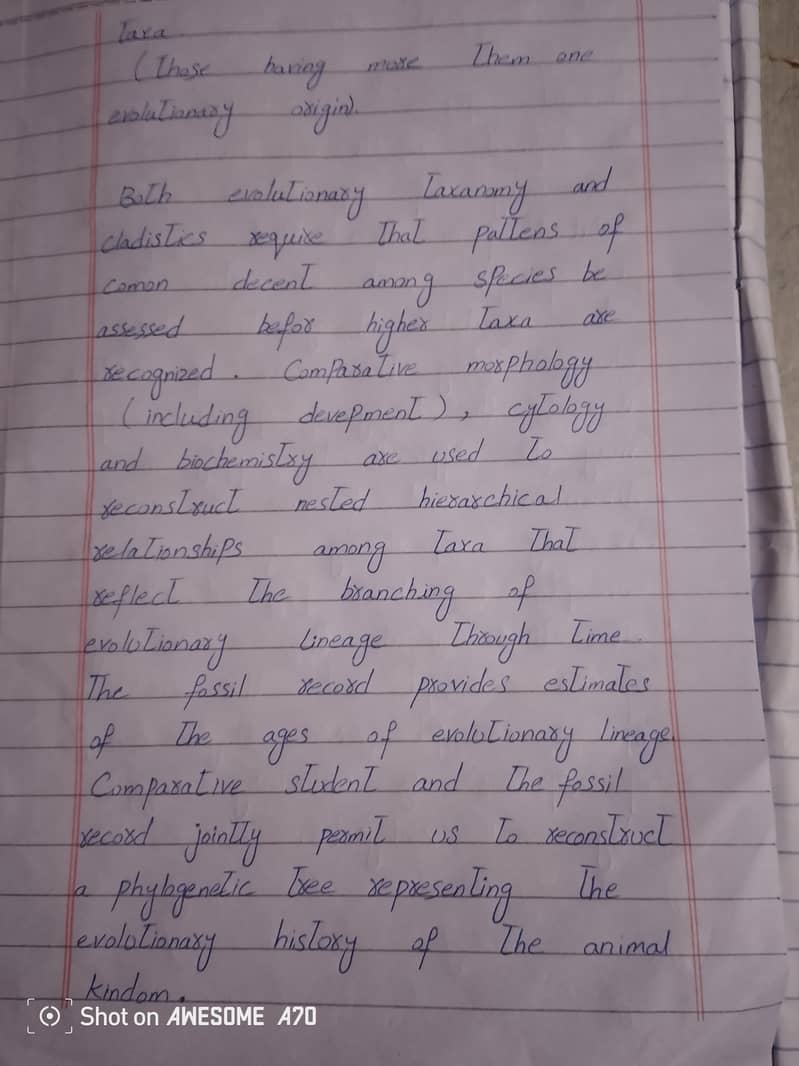 Taxa
(Those having more Them one
evolutionary origin).
Both evolutionary Taxanomy and
cladistics require That pattens of
comon decent among species be
assessed befor higher Taxa are
recognized. Comparative morphology
(including devepment), cytology
and biochemistry are used To
reconstruct nested hierarchical
relationships among Taxa That
reflect The branching of
evolutionary lineage Through Time.
The fossil record provides estimates
of The ages of evolutionary lineage.
Comparative student and The fossil
record jointly permit us To reconstruct
a phylogenetic Tree representing The
evolutionary history of The animal
kindom.
Shot on AWESOME A70